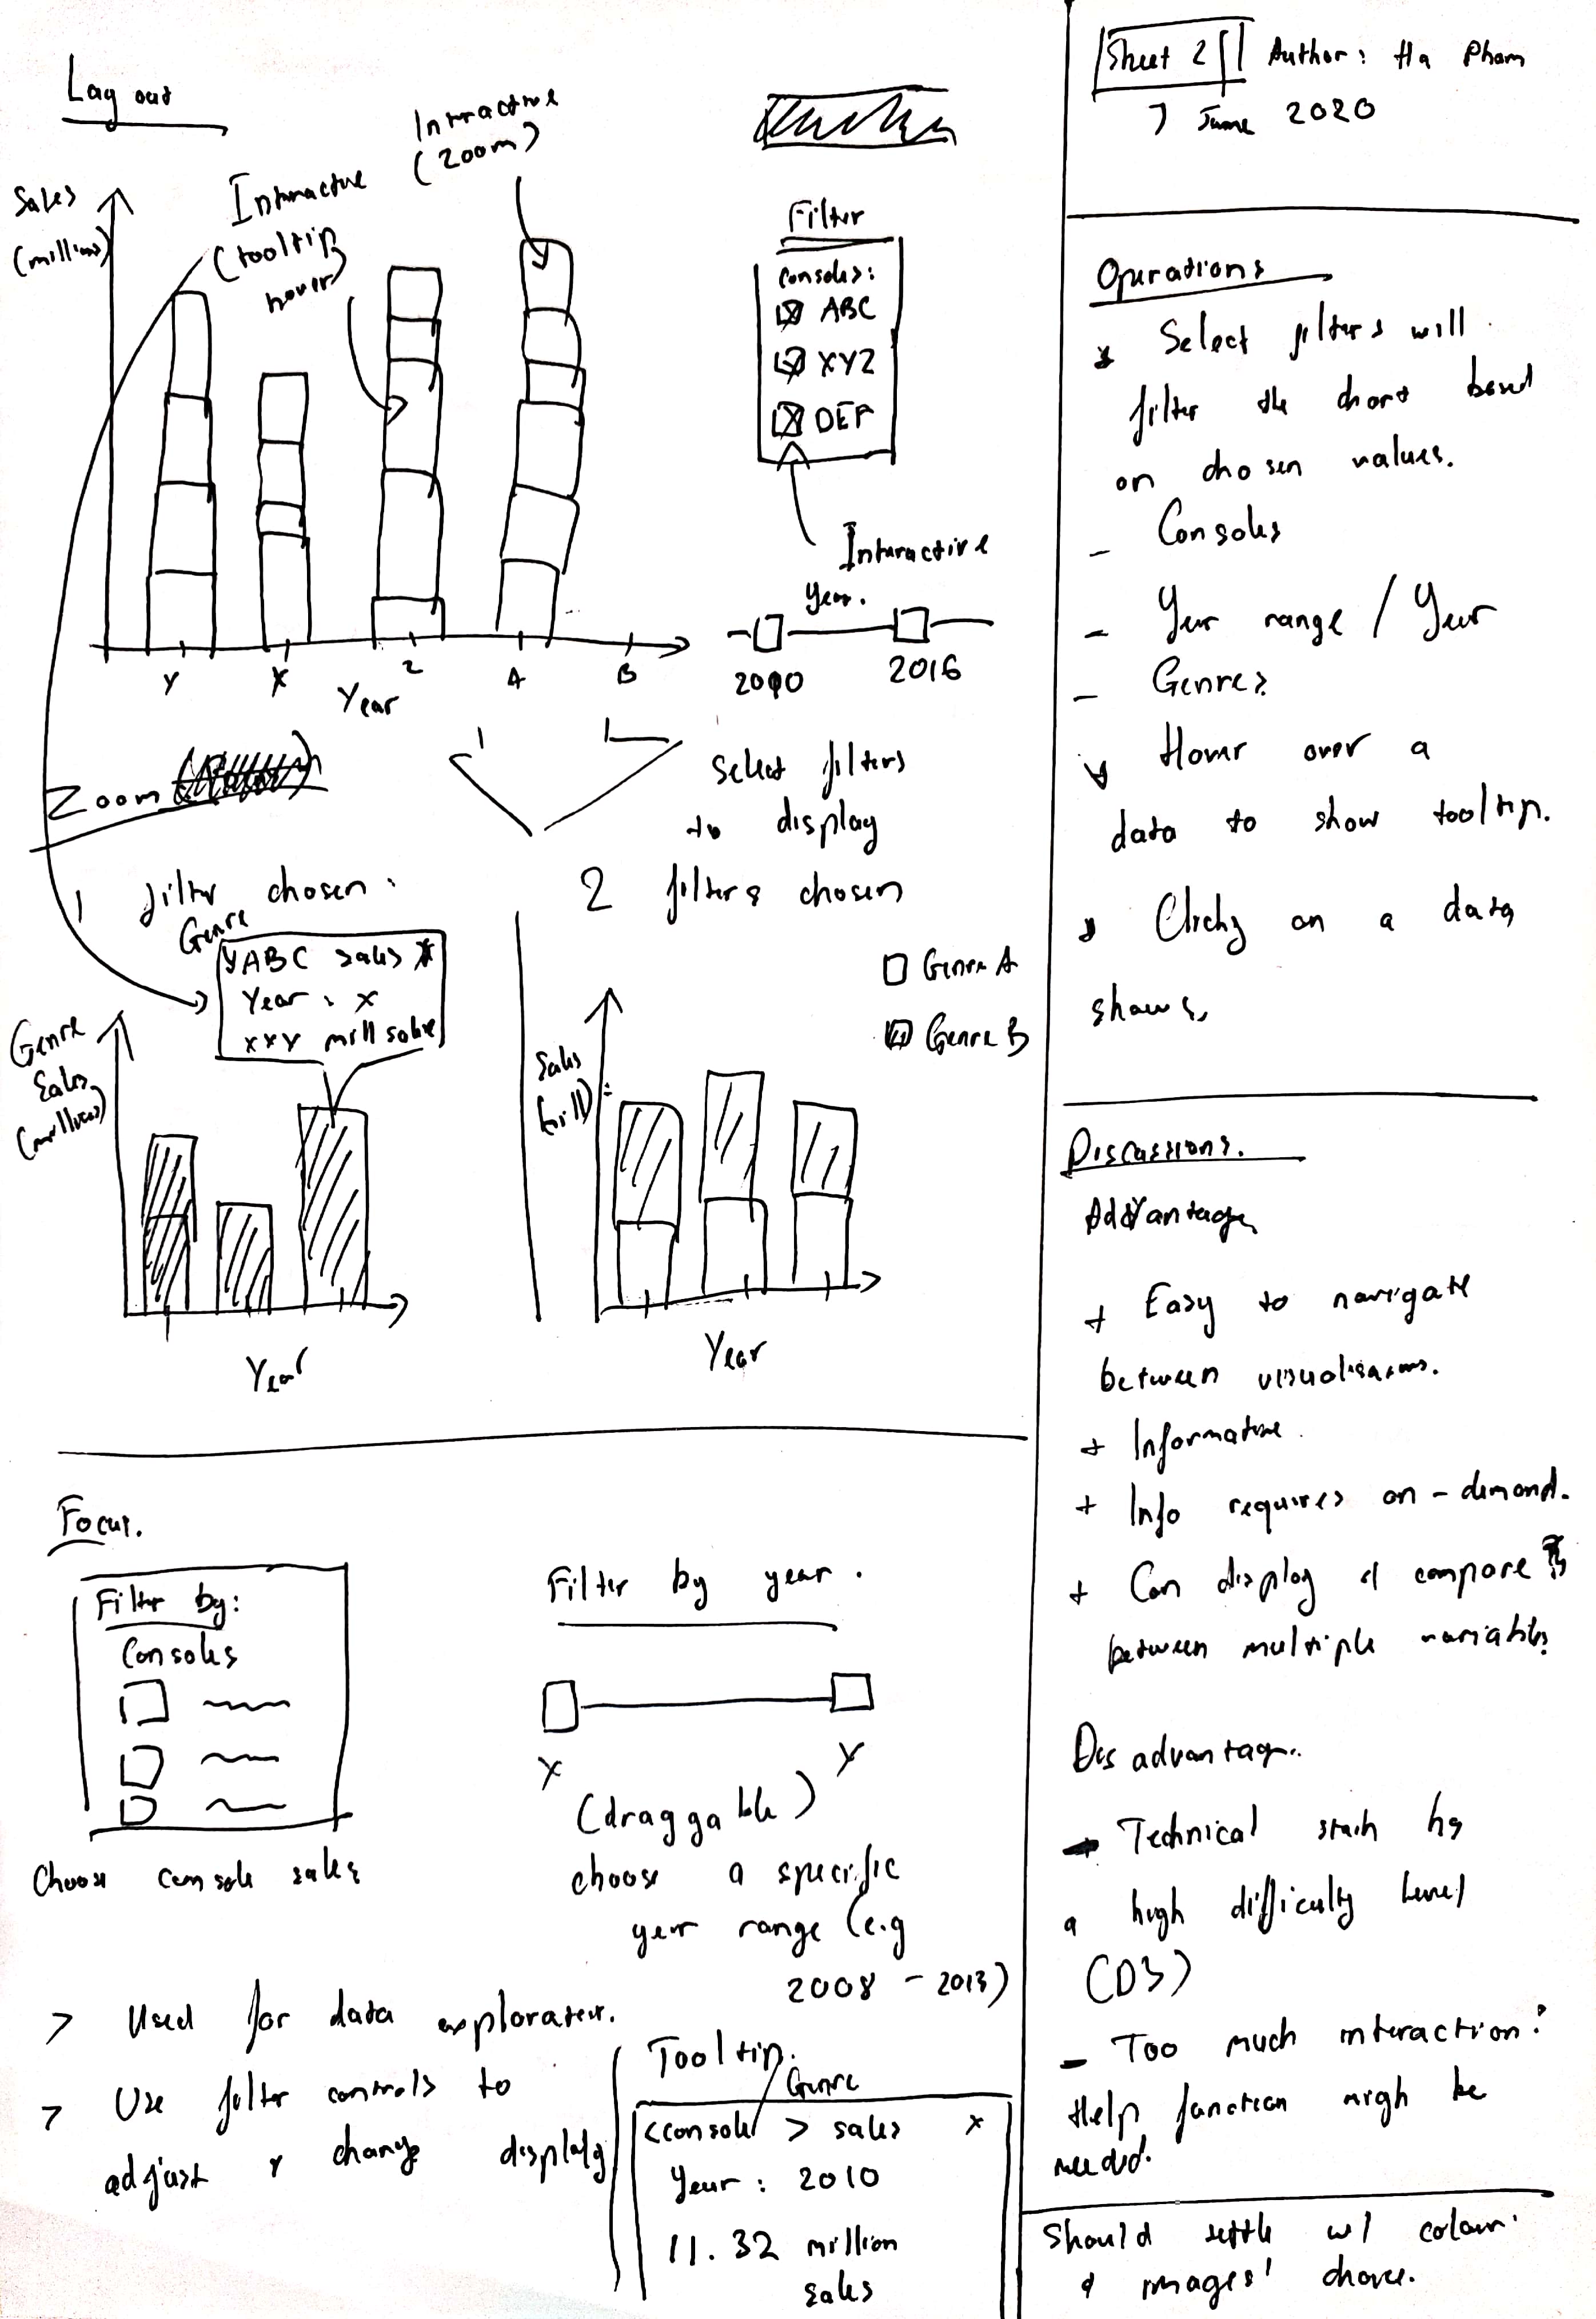 Lay out
Interactive
(zoom)
Interactive
(tooltip
hover)
Sales
(millions)
Y
X
Z
A
B
Year
Filter
Consoles:
ABC
XYZ
DEF
Interactive
Year.
2000
2016
Select filters
to display
Zoom
1 filter chosen:
Genre
ABC sales x
Year: x
xxy mill sales
Genre
Sales
(millions)
Year
2 filters chosen
Genre A
Genre B
Sales
(mill)
Year
Focus.
Filter by:
Consoles
Choose console sales
Filter by year.
X
Y
(draggable)
choose a specific
year range (e.g
2008 - 2013)
> Used for data exploration.
> Use filter controls to
adjust & change display
Tooltip.
Genre
<console / > sales x
Year: 2010
11.32 million
sales
Sheet 2
Author: Ha Pham
7 June 2020
Operations
* Select filters will
filter the chart based
on chosen values.
- Consoles
- Year range / Year
- Genres
* Hover over a
data to show tooltip.
* Clicky on a data
shows,
Discussions.
Advantage
+ Easy to navigate
between visualisations.
+ Informative.
+ Info requires on-demand.
+ Can display & compare
between multiple variables
Disadvantage.
- Technical stack has
a high difficulty level
(D3)
- Too much interaction?
Help function migh be
needed.
Should settle w/ colour
& images' choice.